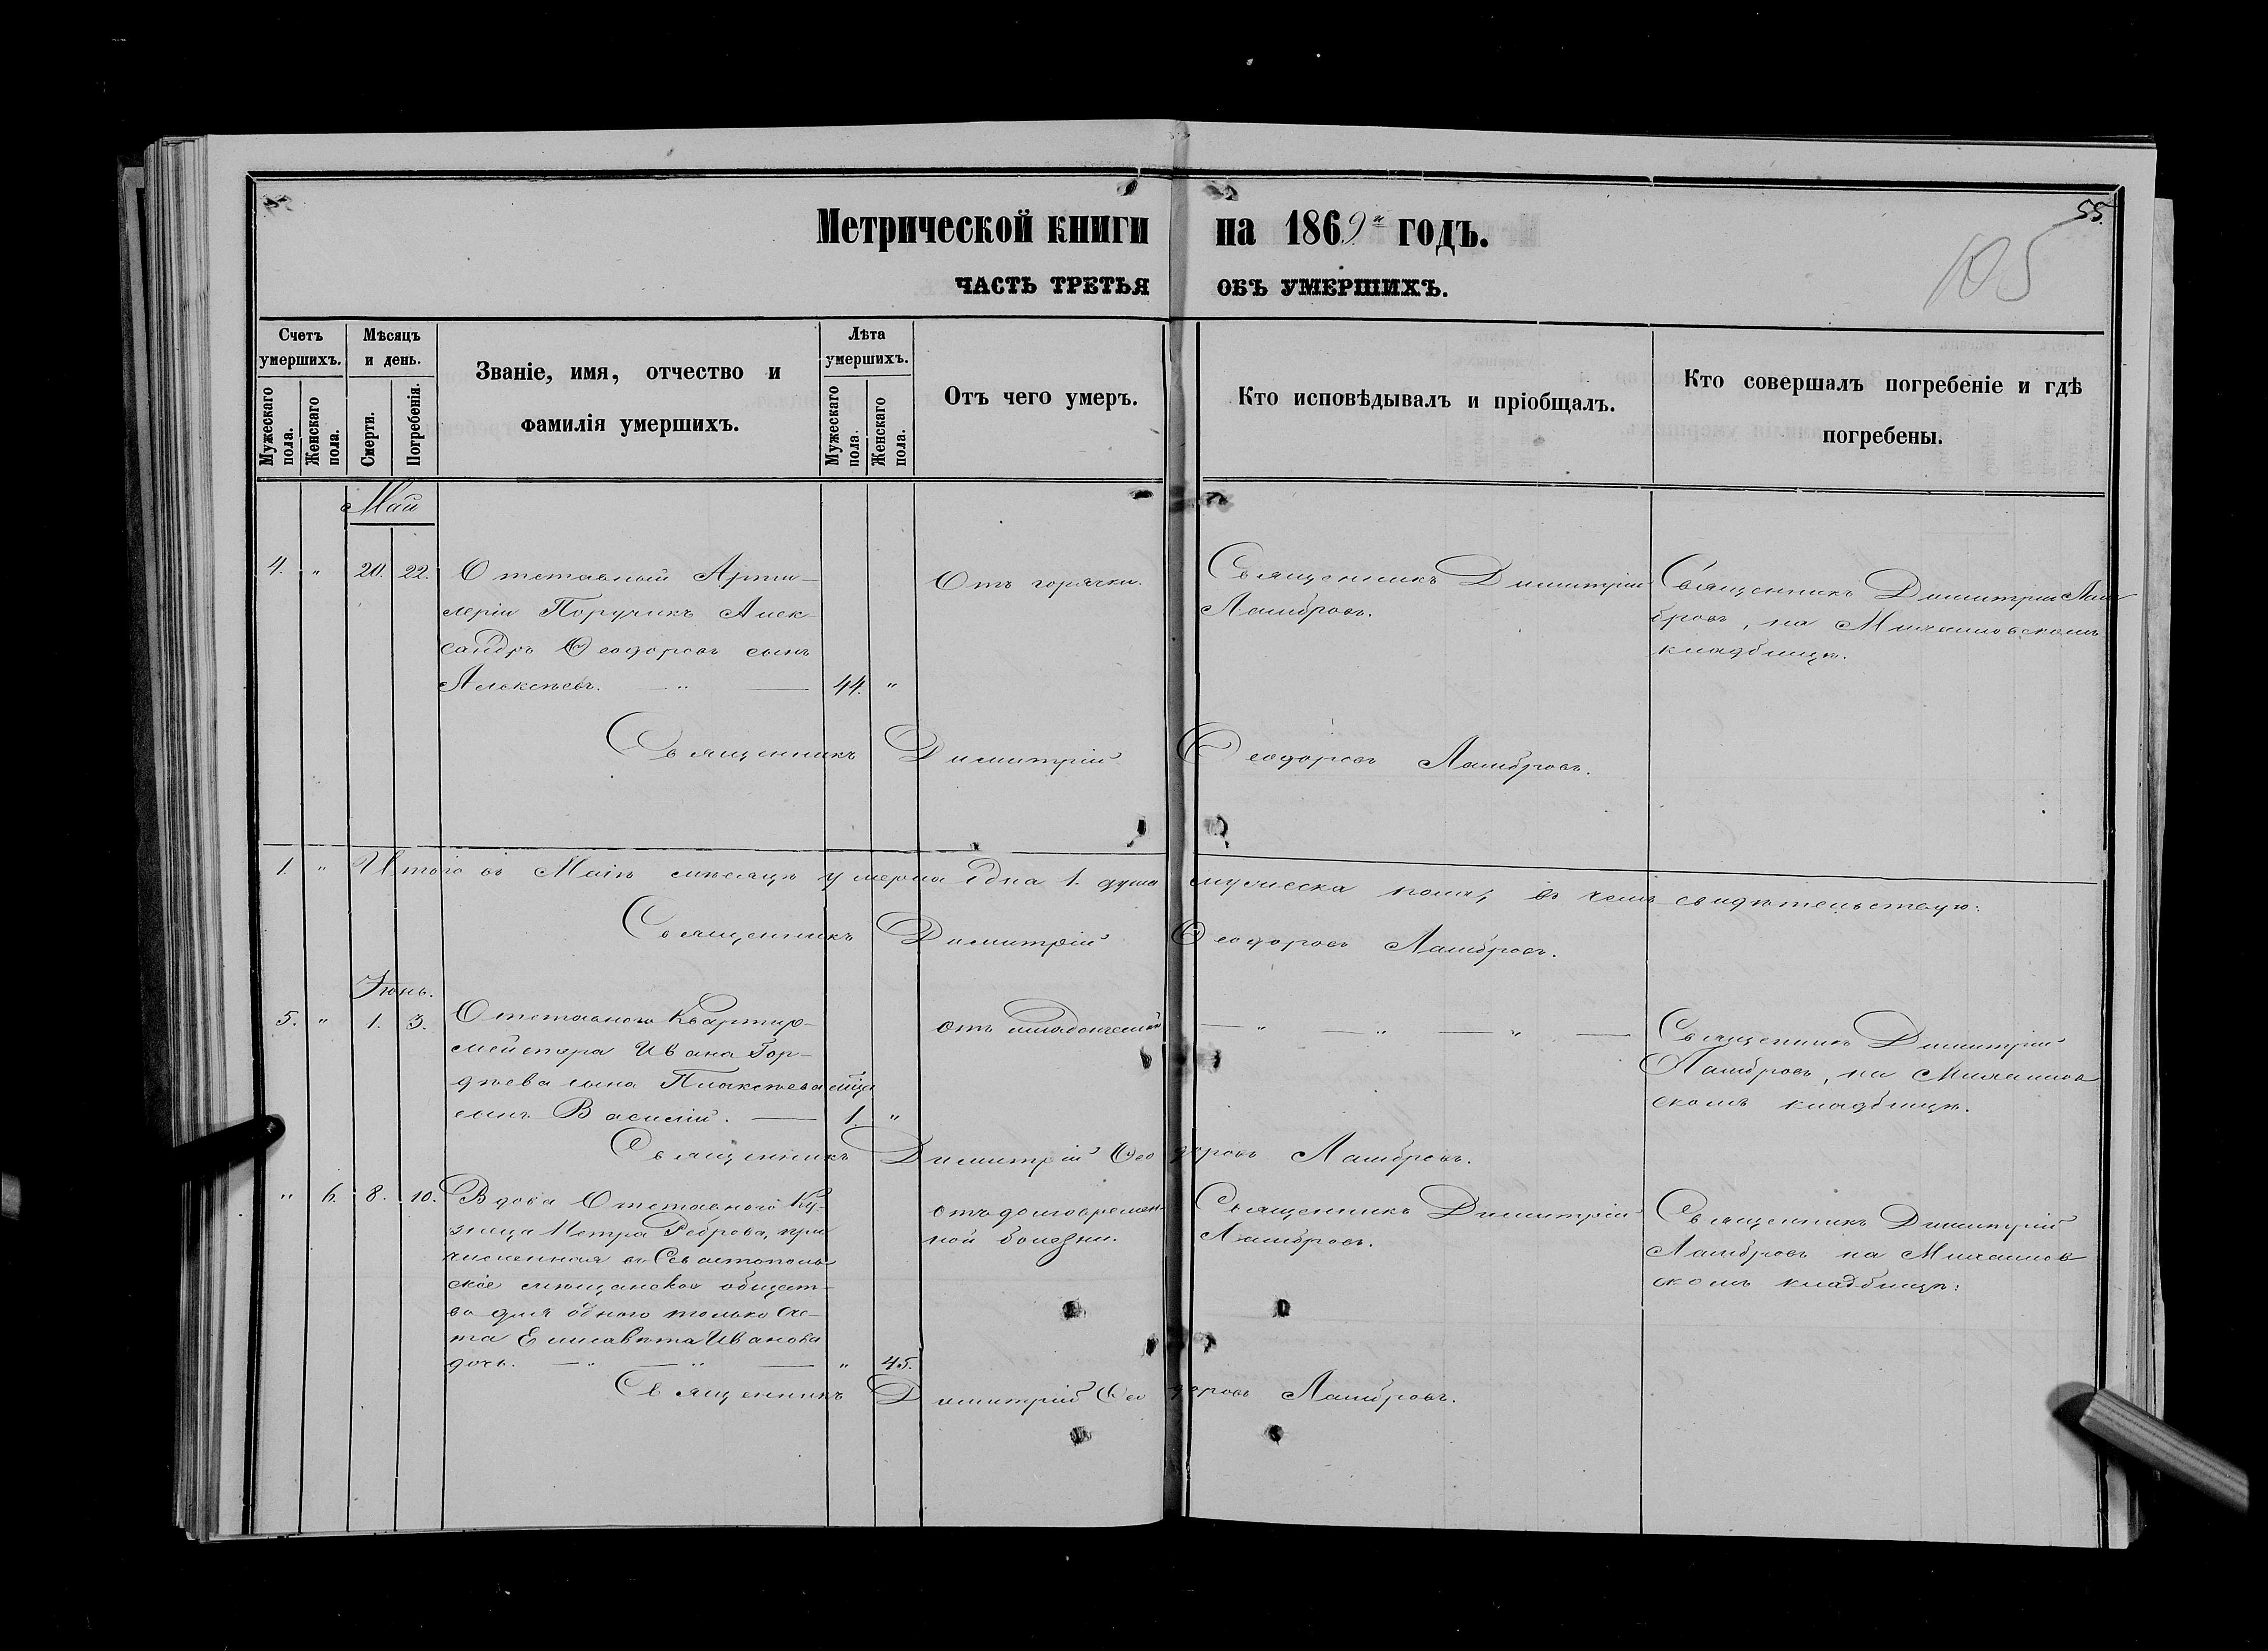 55.
105
Метрической книги на 1869й годъ.
ЧАСТЬ ТРЕТЬЯ ОБЪ УМЕРШИХЪ.
Счетъ умершихъ.
Мужескаго пола.
Женскаго пола.
Мѣсяцъ и день.
Смерти.
Погребенія.
Званіе, имя, отчество и
фамилія умершихъ.
Лѣта умершихъ.
Мужескаго пола.
Женскаго пола.
Отъ чего умеръ.
Кто исповѣдывалъ и пріобщалъ.
Кто совершалъ погребеніе и гдѣ
погребены.
Май
4. " 20. 22.
Отставный Арти-
леріи Поручикъ Алек-
сандръ Ѳеодоровъ сынъ
Алексѣевъ. — " — 44. "
Отъ горячки.
Священникъ Димитрій
Ламбровъ.
Священникъ Димитрій Лам
бровъ, на Михайловскомъ
кладбищѣ.
Священникъ Димитрій Ѳеодоровъ Ламбровъ.
1. " Итого въ Маіѣ мѣсяцѣ умерла одна 1. душа мужеска пола, въ чемъ свидѣтельствую:
Священникъ Димитрій Ѳеодоровъ Ламбровъ.
Іюнь.
5. " 1. 3.
Отставнаго Квартир-
мейстера Ивана Гор-
дѣева сына Плаксѣева мѣця
сынъ Василій. — 1. "
отъ младенческой
— " — " — " —
Священникъ Димитрій
Ламбровъ, на Михайлов
скомъ кладбищѣ.
Священникъ Димитрій Ѳеодоровъ Ламбровъ.
" 6. 8. 10.
Вдова Отставнаго Ку-
знеца Петра Реброва, при
численная въ Севастополь
ское мѣщанское общест-
во для одного только сче-
та Елисавѣта Иванова
дочь. — " — " — " 45.
отъ долговремен-
ной болезни.
Священникъ Димитрій
Ламбровъ.
Священникъ Димитрій
Ламбровъ на Михайлов
скомъ кладбищѣ:
Священникъ Димитрій Ѳеодоровъ Ламбровъ.